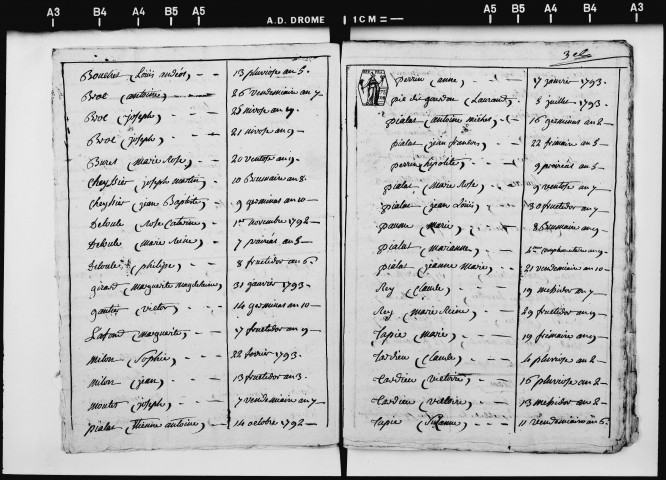 A3 B4 A4 B5 A5
A.D. DROME 1CM
A5 B5 A4 B4 A3
Bouchet (Louis andéol) 13 pluviose an 5.
Broc (antoine) 26 vendemiaire an 7
Broc (joseph) 25 nivose an
Broc (joseph) 21 nivose an 9
Buret (marie Rose) 20 ventose an 9
Cheyssier (joseph martin) 10 Brumaire an 8.
Cheyssier (jean Baptiste) 9 germinal an 10
Deloule (Rose Catherine) 1er novembre 1792
Deloule (marie Reine) 7 prairial an 5
Deloule (philippe) 8 fructidor an 6.
girard (marguerite magdeleine) 31 janvier 1793.
gautier (victor) 14 germinal an 10
Lafond (marguerite) 17 fructidor an 9
milon (Sophie) 22 fevrier 1793.
milon (jean) 13 fructidor an 3.
moutet (joseph) 7 vendemiaire an 7
pialat (Etienne antoine) 14 octobre 1792
perrin (anne) 17 janvier 1793.
pie du gourdon (Laurant) 5 juillet 1793.
pialat (antoine michel) 16 germinal an 2
pialat (jean francois) 22 frimaire an 5
perrin (hipolite) 9 prairial an 5
pialat (marie Rose) 9 ventose an 7
pialat (jean Louis) 30 fructidor an 7
(marie) 8 brumaire an 9
pialat (marianne) 4me complementaire an 9
pialat (jeanne marie) 21 vendemiaire an 10
Rey (Claude) 19 messidor an 7
Rey (marie Reine) 29 fructidor an 9
tapie (marie) 19 frimaire an 9
tardieu (Claude) 4 pluviose an 2
tardieu (victoire) 16 pluviose an 2
tardieu (victoire) 13 messidor an 2
tapie (Suzanne) 11 vendemiaire an 6.